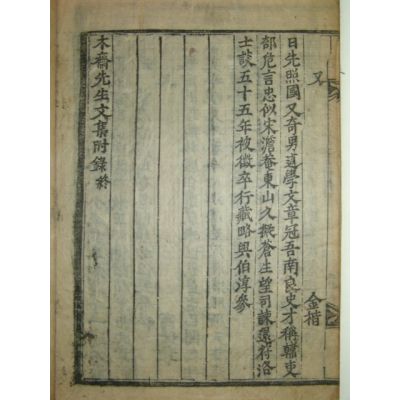 又
金楷
日先照國又奇男道學文章冠吾南良史才稱韓吏
部危言忠似宋澹菴東山久擬蒼生望司諫還符洛
士談五十五年被徵卒行藏略與伯淳參
木齋先生文集附錄終